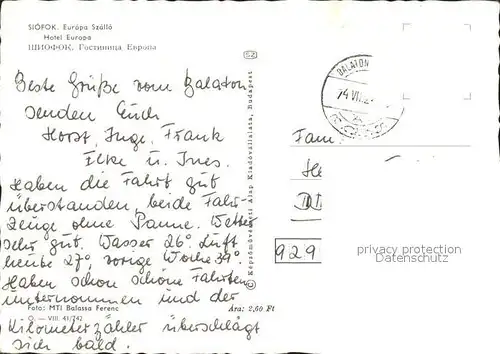 SIÓFOK. Európa Szálló
Hotel Europa
ШИОФОК. Гостиница Европа
52
Beste Grüße vom Balaton
senden Euch
Horst, Inge, Frank
Elke u. Ines.
Haben die Fahrt gut
überstanden, beide Fahr-
zeuge ohne Panne. Wetter
sehr gut. Wasser 26° Luft
heute 27°, vorige Woche 39°.
Haben schon schöne Fahrten
unternommen und der
Foto: MTI Balassa Ferenc
Ára: 2,60 Ft
Kilometerzähler überschlägt
sich bald.
© Képzőművészeti Alap Kiadóvállalata, Budapest
BALATON
74 VII.
Fam
He
DD
929
privacy protection
Datenschutz